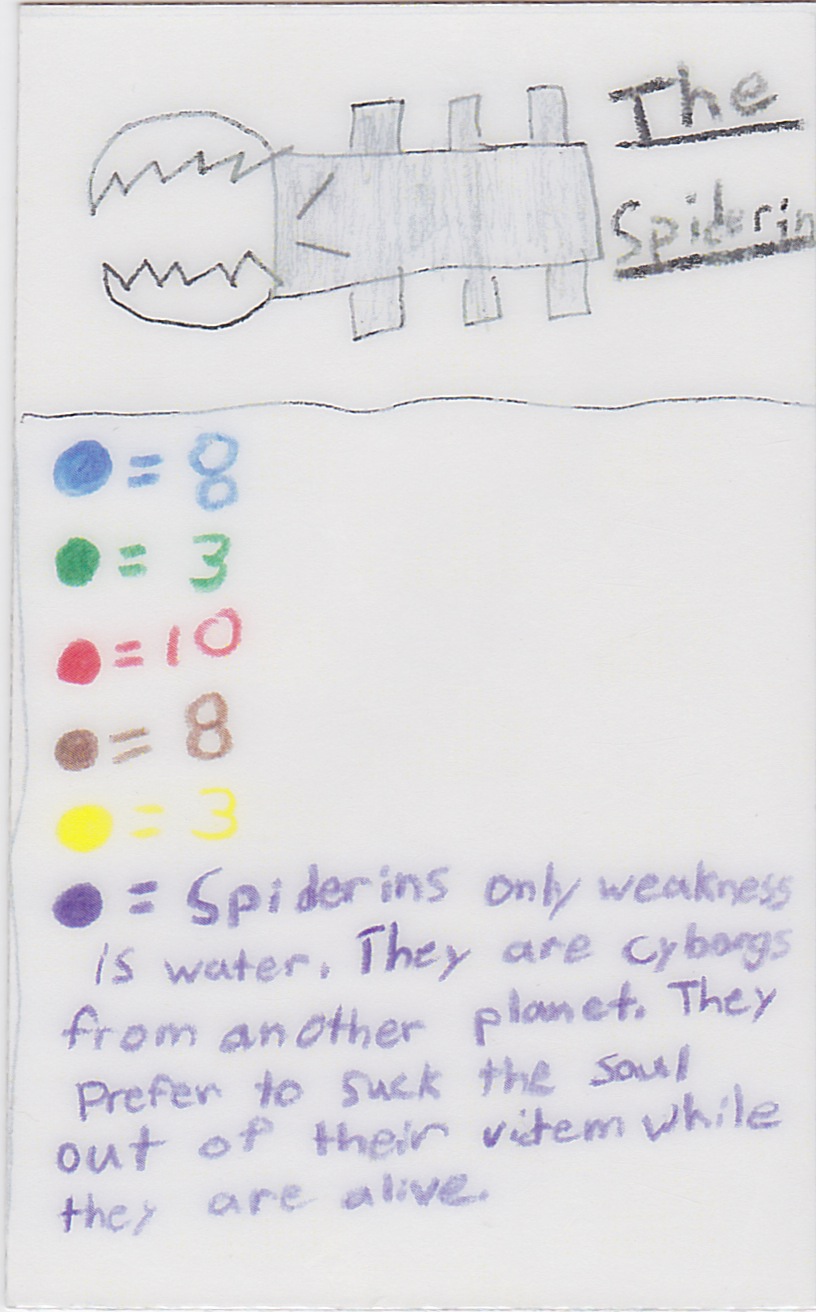 The
Spiderin
= 8
= 3
= 10
= 8
= 3
= Spiderins only weakness
is water. They are cyborgs
from another planet. They
Prefer to suck the soul
out of their vitem while
they are alive.